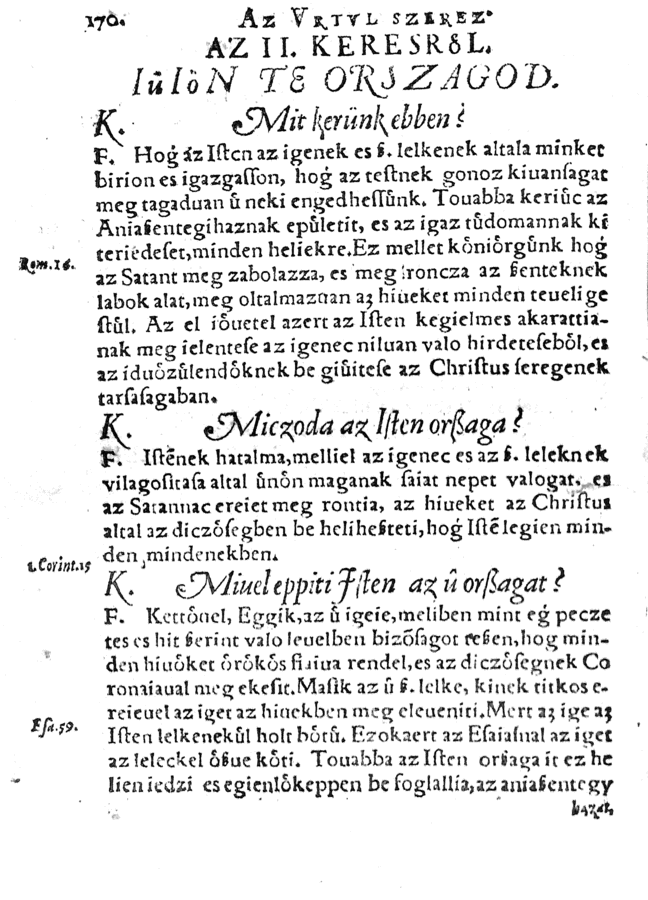 170. AZ VRTVL SZEREZ.
AZ II. KERESRŐL.
IůIỏN TE ORSZAGOD.
K. Mit kerünk ebben?
F. Hoǵ áz Iſten az igenek es ß. lelkenek altala minket
birion es igazgaſſon, hoǵ az teſtnek gonoz kiuanſagat
meg tagaduan ů neki engedheſſůnk. Touabba keriůc az
Aniaßentegihaznak epůletit, es az igaz tůdomannak ki
teriedeſet, minden heliekre. Ez mellet kỏniỏrgůnk hoǵ
Rom. 16.
az Satant meg zabolazza, es meg roncza az ßenteknek
labok alat, meg oltalmazuan aʒ hiueket minden teuelige
ſtůl. Az el iỏuetel azert az Iſten kegielmes akarattia-
nak meg ielenteſe az igenec niluan valo hirdeteſebỏl, es
az iduỏzůlendỏknek be giůiteſe az Chriſtus ſeregenek
tarſaſagaban.
K. Miczoda az Iſten orßaga?
F. Iſtẽnek hatalma, melliel az igenec es az ß. leleknek
vilagoſitaſa altal ůnỏn maganak ſaiat nepet valogat. es
az Satannac ereiet meg rontia, az hiueket az Chriſtus
altal az diczỏſegben be heliheßteti, hoǵ Iſtẽ legien min-
den mindenekben.
1. Corint. 15
K. Miuel eppiti Iſten az ů orßagat?
F. Kettỏuel, Eggik, az ů igeie, meliben mint eǵ pecze
tes es hit ßerint valo leuelben bizõſagot teßen, hog min-
den hiuỏket ỏrỏkỏs fiaiua rendel, es az diczỏſegnek Co
ronaiaual meg ekeſit. Maſik az ů ß. lelke, kinek titkos e-
reieuel az iget az hiuekben meg eleueniti. Mert aʒ ige aʒ
Eſa. 59.
Iſten lelkenekůl holt bỏtů. Ezokaert az Eſaiaſnal az iget
az leleckel ỏßue kỏti. Touabba az Iſten orßaga it ez he
lien iedzi es egienlỏkeppen be foglallia, az aniaßentegy
hazat,